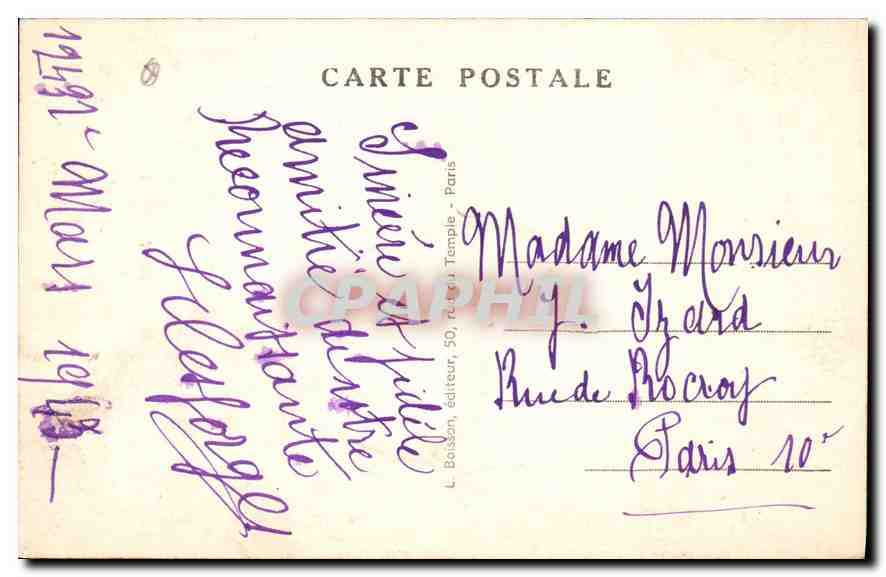 CARTE POSTALE
Mars 19
Sincère et fidèle
amitié de votre
Reconnaissante
L. Boisson, éditeur, 50, rue du Temple - Paris
CPAPHIL
Madame Monsieur
J. Izard
Rue de Rocroy
Paris 10e